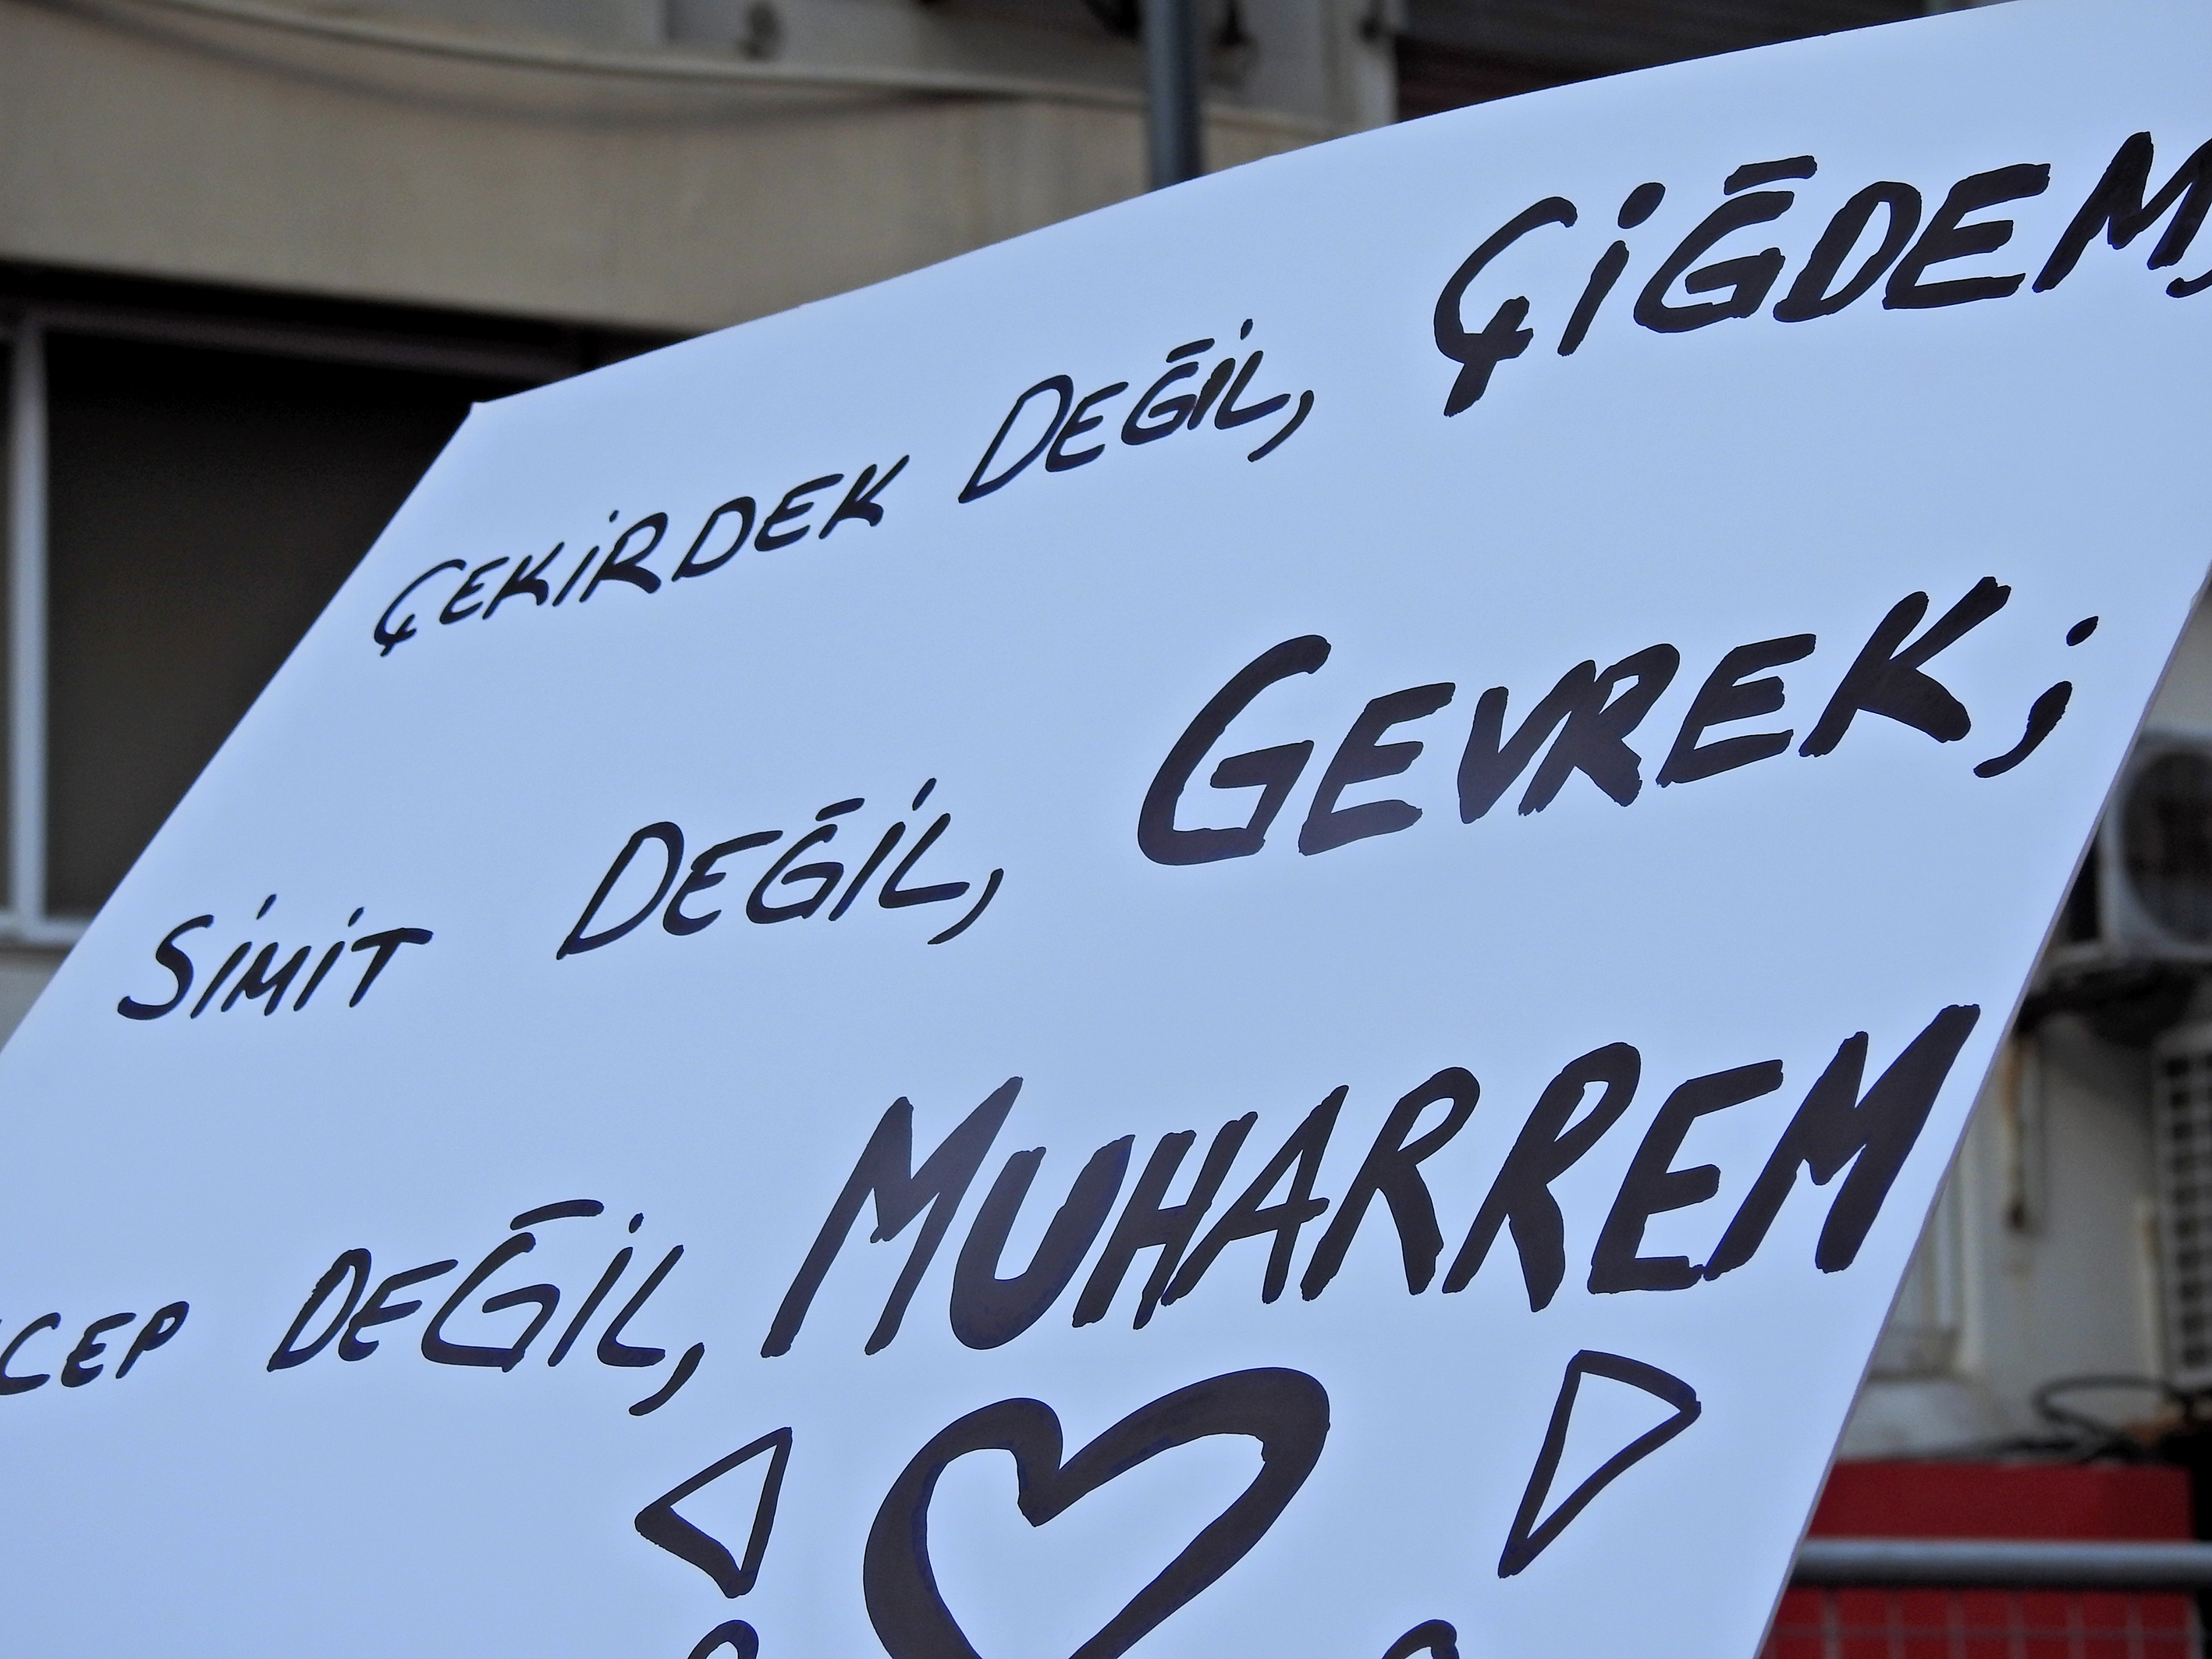 ÇEKİRDEK DEĞİL, ÇİĞDEM,
SİMİT DEĞİL, GEVREK;
CEP DEĞİL, MUHARREM